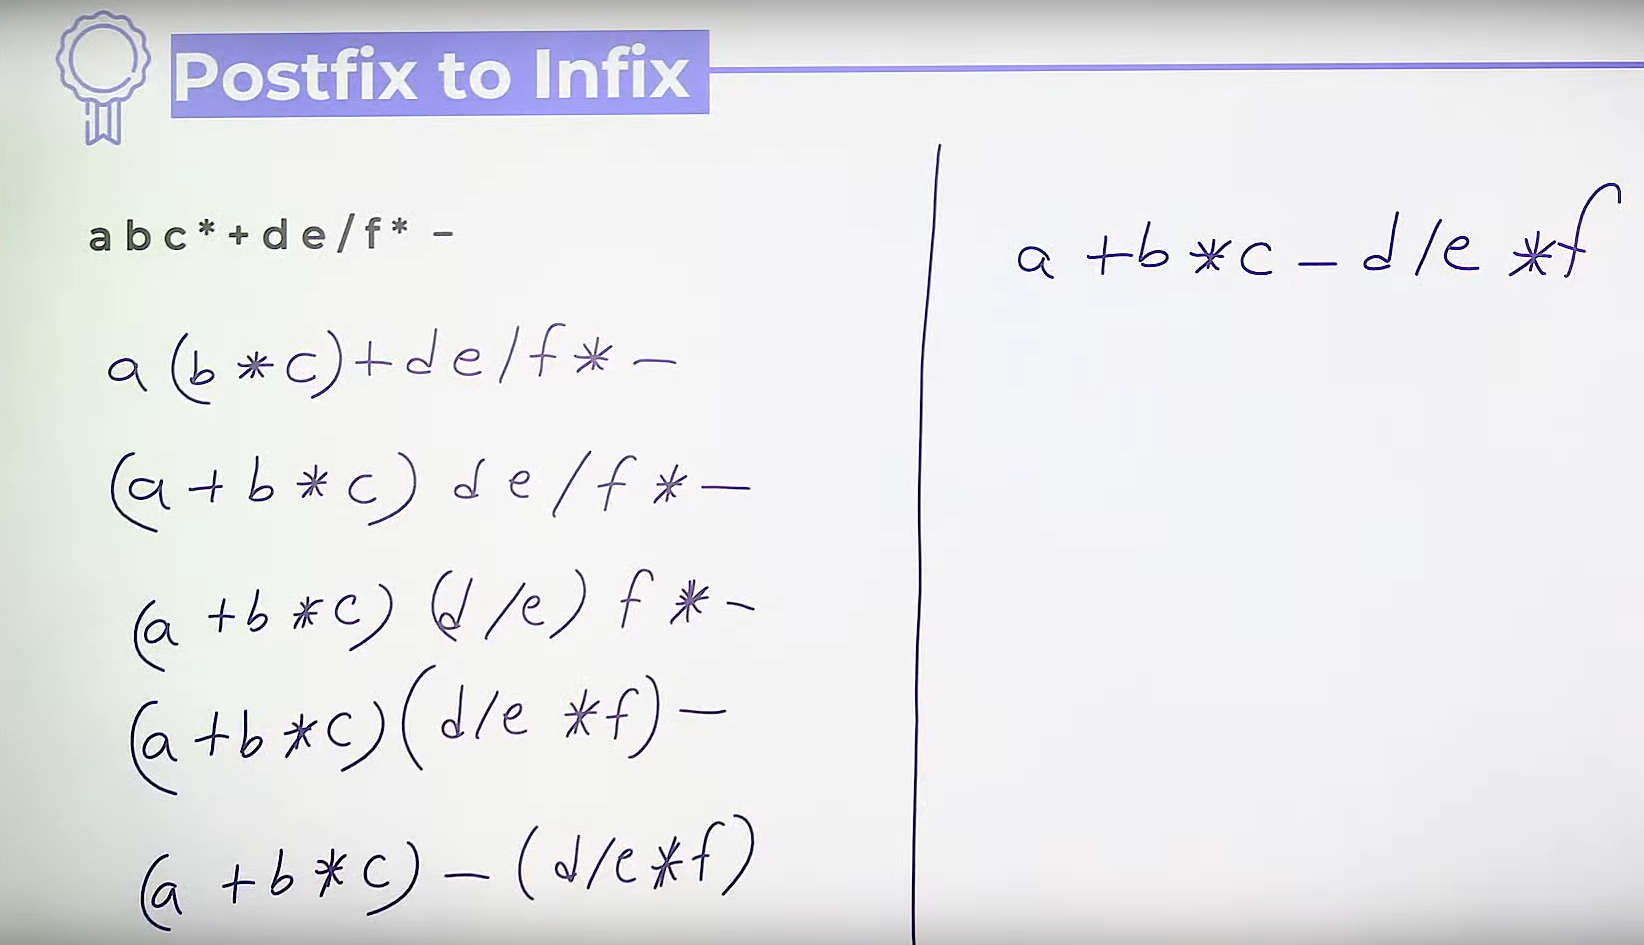 Postfix to Infix
a b c * + d e / f * -
a (b * c) + d e / f * -
(a + b * c) d e / f * -
(a + b * c) (d / e) f * -
(a + b * c) (d / e * f) -
(a + b * c) - (d / e * f)
a + b * c - d / e * f